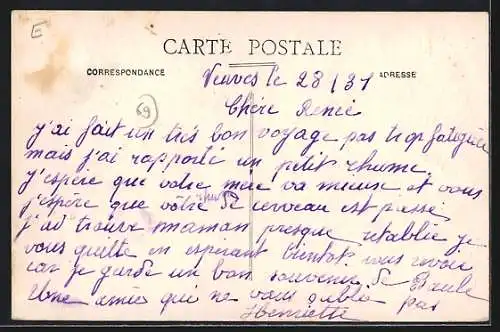 E
CARTE POSTALE
CORRESPONDANCE
ADRESSE
Veuves le 28/31
69
Chère Renée
j'ai fait un très bon voyage pas trop fatiguée
mais j'ai rapporté un petit rhume
j'espère que votre mère va mieux et vous
rhume
j'espère que vôtre de cerveau est passé
j'ai trouvé maman presque rétablie je
vous quitte en espérant bientot vous revoir
car je garde un bon souvenir de
Une amie qui ne vous oublie pas
Henriette